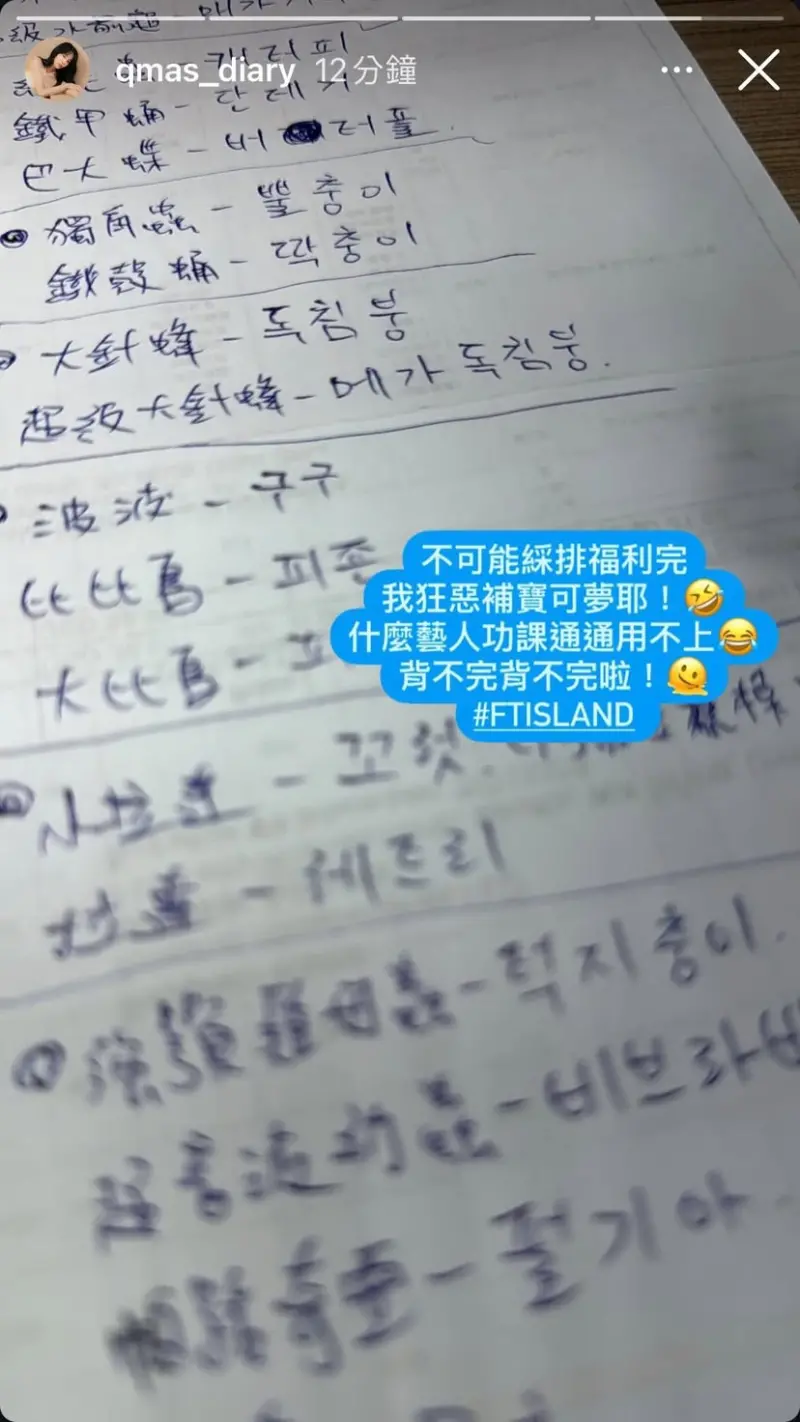 qmas_diary 12分鐘
鐵甲蛹 - 단데기
巴大蝶 - 버터플
獨角蟲 - 뿔충이
鐵殼蛹 - 딱충이
大針蜂 - 독침붕
超級大針蜂 - 메가독침붕.
波波 - 구구
比比鳥 - 피존
大比鳥 - 피
不可能綵排福利完
我狂惡補寶可夢耶！🤣
什麼藝人功課通通用不上😂
背不完背不完啦！🫠
#FTISLAND
小拉達 - 꼬렛.
拉達 - 레트리
- 턱지충이.
超音波幼蟲 - 비브라바